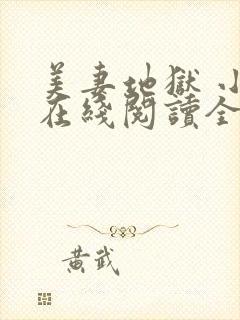 美妻地獄 小
在綫閱讀全
黃武